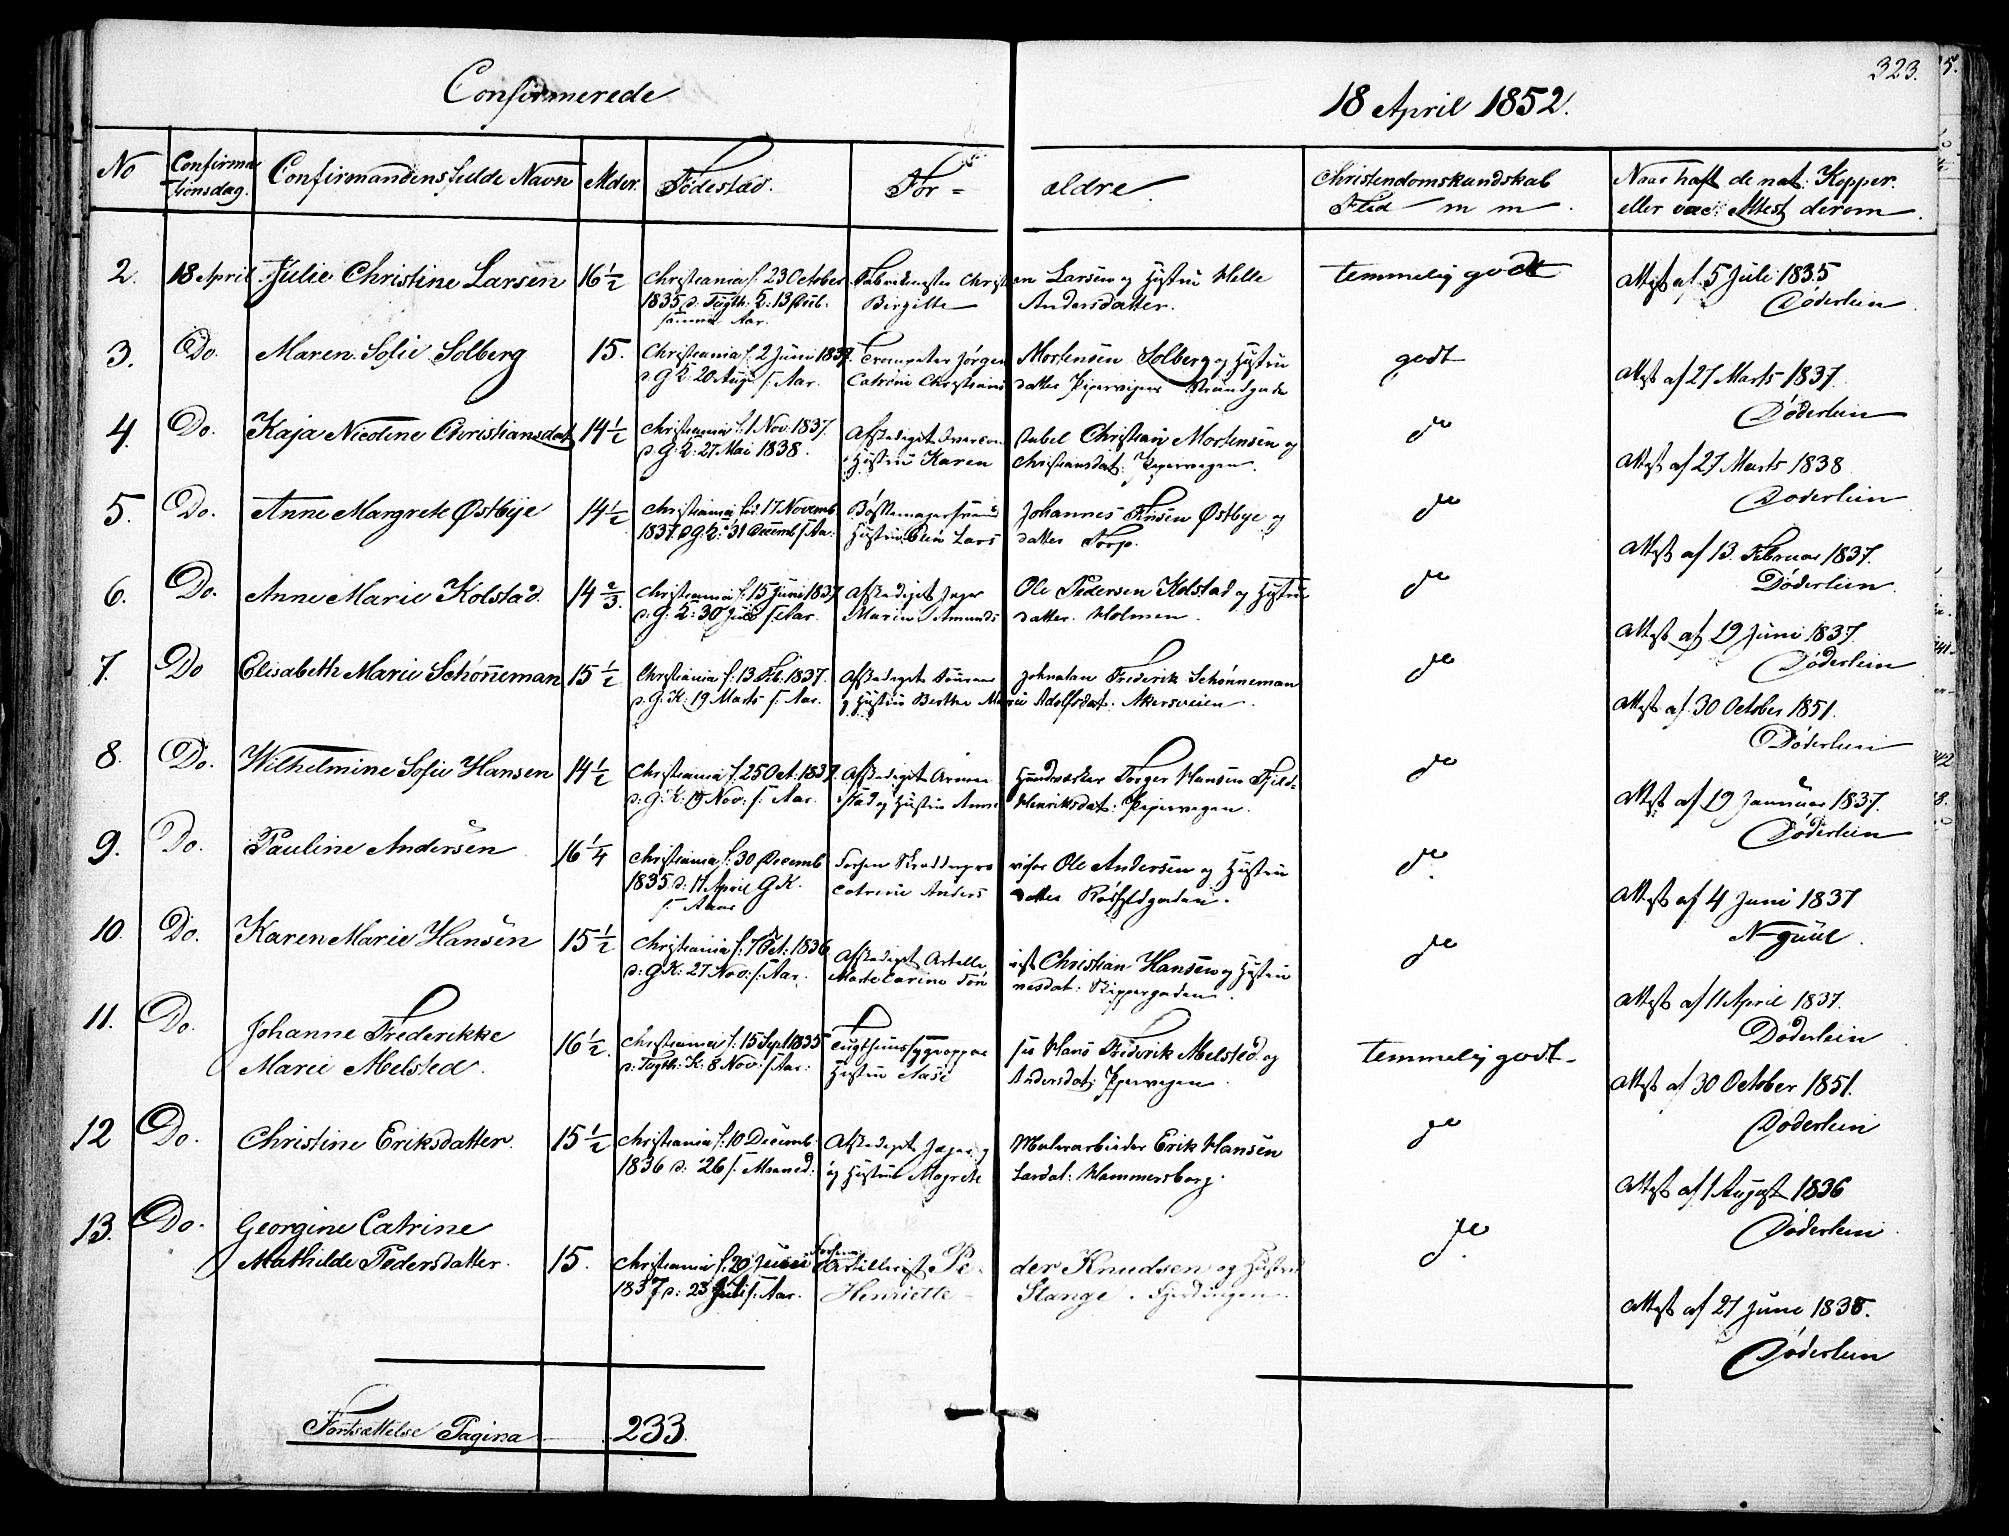 Confirmerede
18 April 1852.
323.
No Confirmationsdag. Confirmandens fulde Navn Alder. Fødested. For- ældre. Christendomskundskab Flid m m. Naar haft de nat: Kopper. eller vac: Attest derom.
2. 18 April Julie Christine Larsen 16 1/2 Christiania f. 23 October Christen Larsen og Hustru Helle temmelig godt Attest af 5 Juli 1835
1835 d: Tugth: K: samme Aar. Birgitte Andersdatter. Døderlein
3. Do. Maren Sofie Solberg 15. Christiania f. 2 Juni 1837. Trompeter Jørgen Mortensen Solberg og Hustru godt Attest af 27 Marts 1837.
d. G. K: 20 Aug: s. Aar. Catrine Christians datter Pipervigen Strandgade Døderlein
4. Do. Kaja Nicoline Christiansdat 14 1/2 Christiania f. 1 Nov: 1837. Afskediget Christian Mortensen og do Attest af 27 Marts 1838
d. G. K: 27 Mai 1838. Hustru Karen Christiansdat: Pipervigen. Døderlein
5. Do. Anne Margrete Østbye 14 1/2 Christiania fød. 17 Novemb Bøssemagersvend Johannes Østbye og do Attest af 13. Februar 1837.
1837 d G: K: 31 Decemb s. Aar. Hustru Lars datter Torp. Døderlein
6. Do. Anne Marie Kolstad 14 2/3. Christiania f. 15 Juni 1837 Afskediget Jæger Ole Pedersen Kolstad og Hustru do Attest af 19 Juni 1837.
d: G: K: 30 Juli s. Aar. Maria Amunds datter. Holmen. Døderlein
7. Do Elisabeth Marie Schønneman 15 1/2 Christiania f: 13 Feb. 1837. Afskediget Johnatan Frederik Schønneman do Attest af 30 October 1851.
d. G. K: 19 Marts s. Aar. og Hustru Berthe Marie Adolfsdat. Akersveien. Døderlein
8. Do. Wilhelmine Sofie Hansen 14 1/2 Christiania f. 25 Oct: 1837. Afskediget Torger Hansen do Attest af 19 Januar 1837.
d: G. K: 19 Nov: s. Aar. og Hustru Anne Henriksdat: Pipervigen. Døderlein
9. Do. Pauline Andersen 16 1/4 Christiania f: 30 Decemb Ole Andersen og Hustru do Attest af 4 Juni 1837
1835. d: 17 April G K. s. Aar Catrine Anders datter
10. Do. Karen Marie Hansen 15 1/2 Christiania f. 7 Oct: 1836 Afskediget Artillerist Christian Hansen og Hustru do Attest af 11 April 1837.
d: G K: 27 Nov: s. Aar. Marte Carine Tønnesdat: Skippergaden. Døderlein
11. Do. Johanne Frederikke 16 1/2. Christiania f. 15 Sept 1835 Hans Frederik Melsted og temmelig godt Attest af 30 October 1851.
Marie Melsted. d. Tugth: K: 8 Nov: s. Aar: Hustru Aase Andersdat: Pipervigen Døderlein
12 Do. Christine Eriksdatter. 15 1/2 Christiania f. 10 Decemb Afskediget Jæger og Erik Hansen do Attest af 1 August 1836
1836 d. 26 s. Maaned. og Hustru Magrete Larsdat: Hammersborg. Døderlein
13. Do. Georgine Catrine
Mathilde Pedersdatter. 15. Christiania f. 20 Juni Artillerist Peder Knudsen og Hustru do Attest af 27 Juni 1838.
1837 d: 23 Juli s. Aar. Henriette Stange. Fjerdingen. Døderlein
Fortsættelse Pagina 233